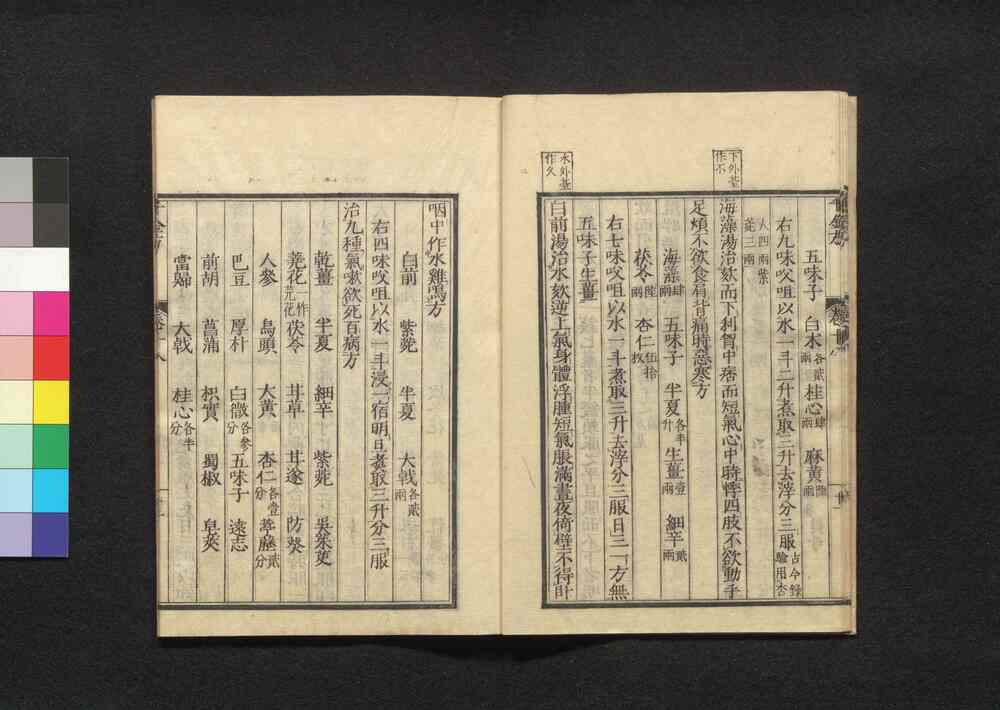 下外臺
作不
水外臺
作久
五味子 白朮各貳兩 桂心肆兩 麻黃陸兩
右九味㕮咀以水一斗二升煮取三升去滓分三服古今錄驗用杏
人四兩紫菀三兩
海藻湯治欬而下利胷中痞而短氣心中時悸四肢不欲動手
足煩不欲食肩背痛時惡寒方
海藻肆兩 五味子 半夏各半升 生薑壹兩 細辛貳兩
茯苓陸兩 杏仁伍拾枚
右七味㕮咀以水一斗煮取三升去滓分三服日三一方無
五味子生薑
白前湯治水欬逆上氣身體浮腫短氣脹滿晝夜倚壁不得臥
咽中作水雞鳴方
白前 紫菀 半夏 大戟各貳兩
右四味㕮咀以水一斗浸一宿明旦煮取三升分三服
治九種氣嗽欲死百病方
乾薑 半夏 細辛 紫菀 吳茱萸
蕘花一作芫花 茯苓 甘草 甘遂 防葵
人參 烏頭 大黃 杏仁各壹分 葶藶貳分
巴豆 厚朴 白薇各參分 五味子 遠志
前胡 菖蒲 枳實 蜀椒 皁莢
當歸 大戟 桂心各半分